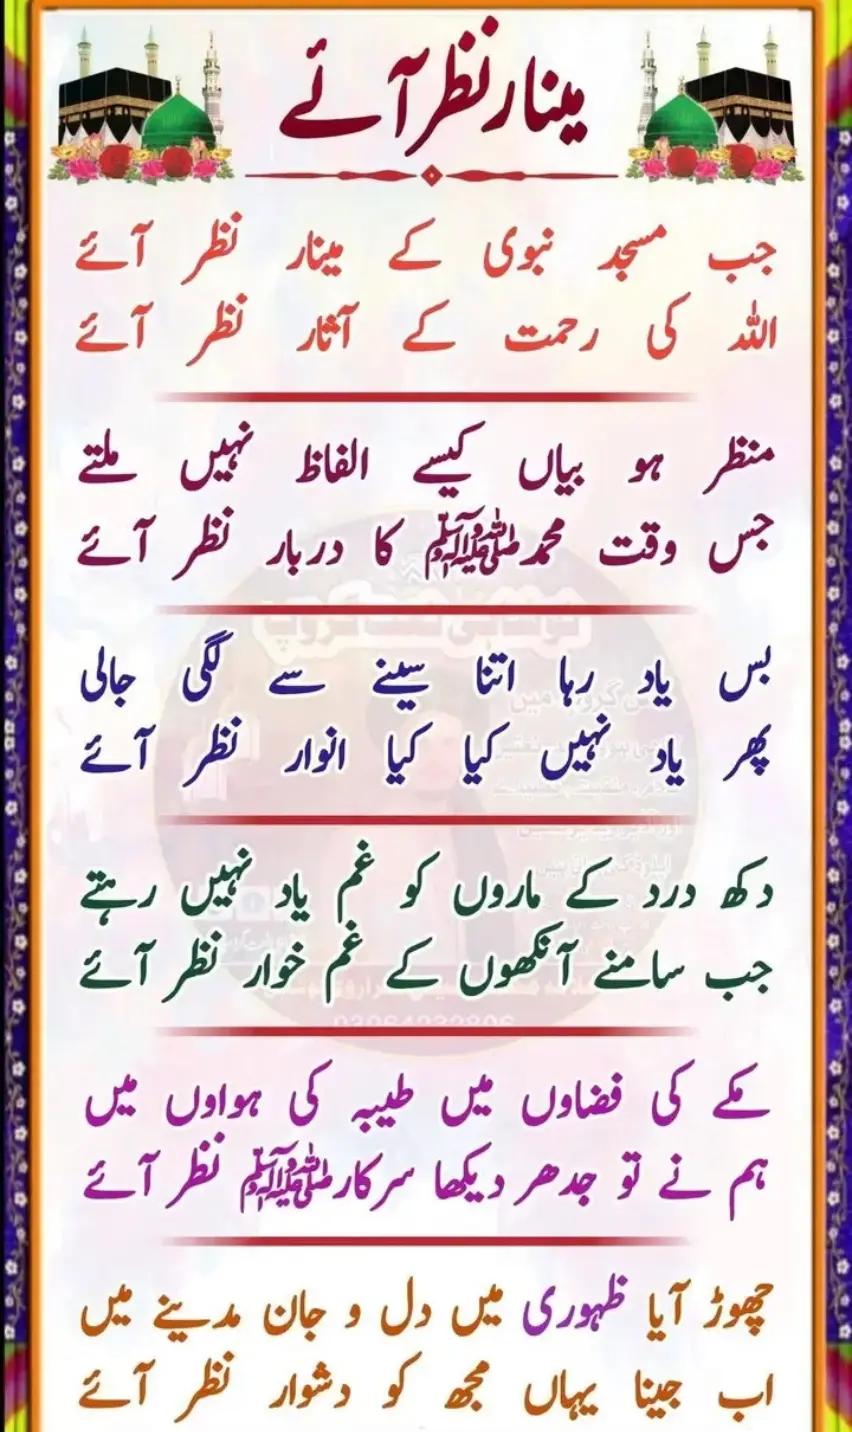 مینار نظر آئے
جب مسجد نبوی کے مینار نظر آئے
اللہ کی رحمت کے آثار نظر آئے
منظر ہو بیاں کیسے الفاظ نہیں ملتے
جس وقت محمدﷺ کا دربار نظر آئے
بس یاد رہا اتنا سینے سے لگی جالی
پھر یاد نہیں کیا کیا انوار نظر آئے
دکھ درد کے ماروں کو غم یاد نہیں رہتے
جب سامنے آنکھوں کے غم خوار نظر آئے
مکے کی فضاوں میں طیبہ کی ہواوں میں
ہم نے تو جدھر دیکھا سرکارﷺ نظر آئے
چھوڑ آیا ظہوری میں دل و جان مدینے میں
اب جینا یہاں مجھ کو دشوار نظر آئے